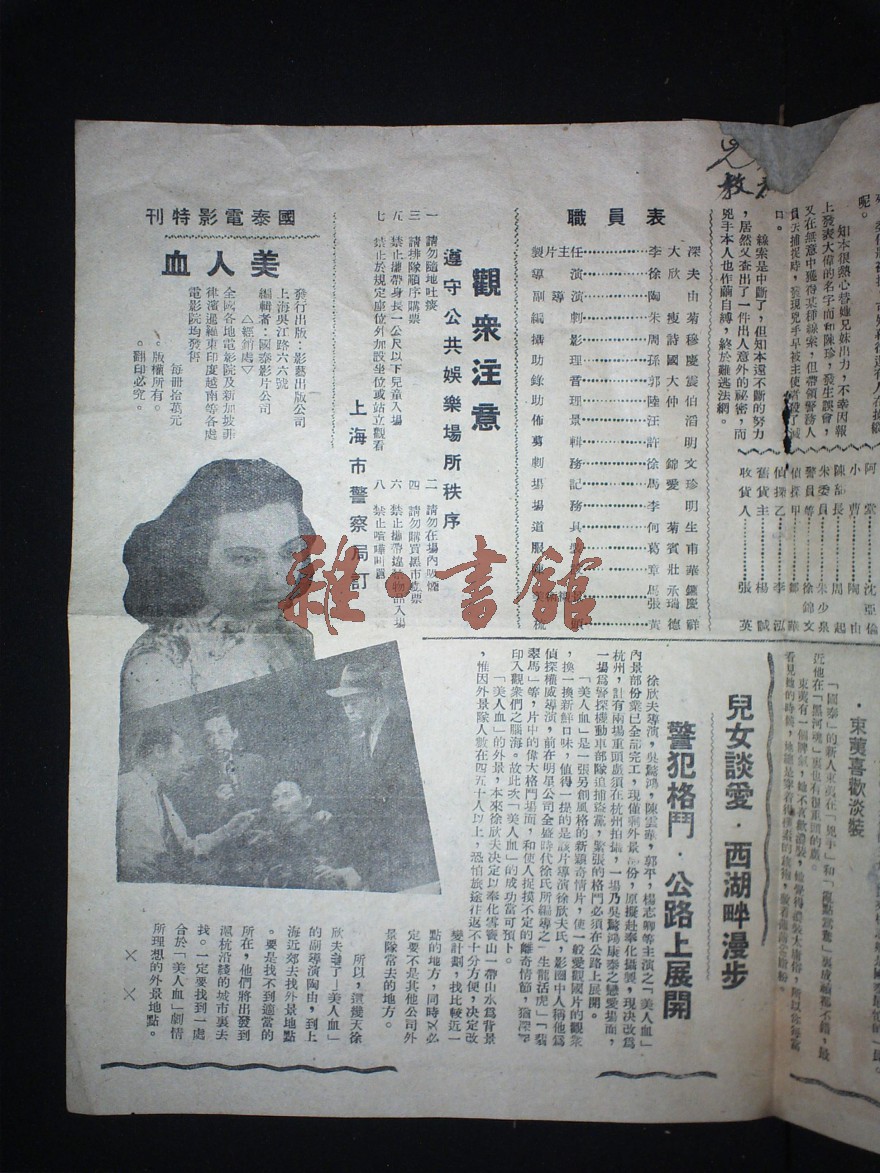 呢。
知本很熱心替她兄妹出力，不幸因報
上發表大偉的名字而和陳珍，發生誤會，
又在無意中獲得某種線索，但帶領警務人
員去捕捉時，發現兇手早被主使者殺了滅
口。
線索是中斷了，但知本還不斷的努力
，居然又查出了一件出人意外的祕密，而
兇手本人也作繭自縛，終於難逃法網。
阿棠……沈亞倫
小曹……陶由
陳部長……周起
朱委員……朱少泉
警員等……徐錦文
偵探甲……鄒華
偵探乙……李泓
舊貨主……楊誠
收貨人……張英
職員表
製片主任……李大深
導演……徐欣夫
副導演……陶由
編劇……朱瘦菊
攝影……周詩穆
助理……孫國慶
錄音……郭大震
助理……陸仲伯
佈景……汪滔
剪輯……許明
劇務……徐錦文
場記……馬愛珍
場務……李明
道具……何菊生
服裝……葛賓甫
觀衆注意
遵守公共娛樂場所秩序
一 請勿隨地吐痰
二 請勿在場內吸煙
三 請排隊順序購票
四 請勿購買黑市戲票
五 禁止攜帶身長一公尺以下兒童入場
六 禁止攜帶違禁物品入場
七 禁止於規定座位外加設坐位或站立觀看
八 禁止喧嘩叫囂
上海市警察局訂
國泰電影特刊
美人血
發行出版：影藝出版公司
上海吳江路六六號
編輯者：國泰影片公司
△經銷處▽
全國各地電影院及新加坡菲
律濱暹羅東印度越南等各處
電影院均發售
每冊拾萬元
。版權所有。
。翻印必究。
雜·書館
·東漢喜歡淡裝
兒女談愛·西湖畔漫步
警犯格鬥·公路上展開
徐欣夫導演，吳驚鴻，陳雲華，郭平，楊志卿等主演之「美人血」
內景部份業已全部完工，現僅剩外景部份，原擬赴奉化攝製，現決改爲
杭州，計有兩場重頭戲須在杭州拍攝，一場乃吳驚鴻康泰之戀愛場面，
一場爲警探機動車部隊追捕盜黨，緊張的格鬥必須在公路上展開。
「美人血」是一張另創風格的新穎奇情片，使一般愛觀國片的觀衆
，換一換新鮮口味，值得一提的是該片導演徐欣夫氏，影圈中人稱他爲
偵探權威導演，前在明星公司全盛時代徐氏所編導之「生龍活虎」「翡
翠馬」等，片中的偉大格鬥場面，和使人捉摸不定的離奇情節，猶深深
印入觀衆們之腦海。故此次「美人血」的成功當可預卜。
「美人血」的外景，本來徐欣夫決定以奉化雪竇山一帶山水爲背景
，惟因外景隊人數在四五十人以上，恐怕旅途往返不十分方便，決定改
變計劃，找比較近一
點的地方，同時又必
定要不是其他公司外
景隊常去的地方。
所以，這幾天徐
欣夫爲了「美人血」
的副導演陶由，到上
海近郊去找外景地點
。要是找不到適當的
所在，他們將出發到
滬杭沿綫的城市裏去
找。一定要找到一處
合於「美人血」劇情
所理想的外景地點。
× ×